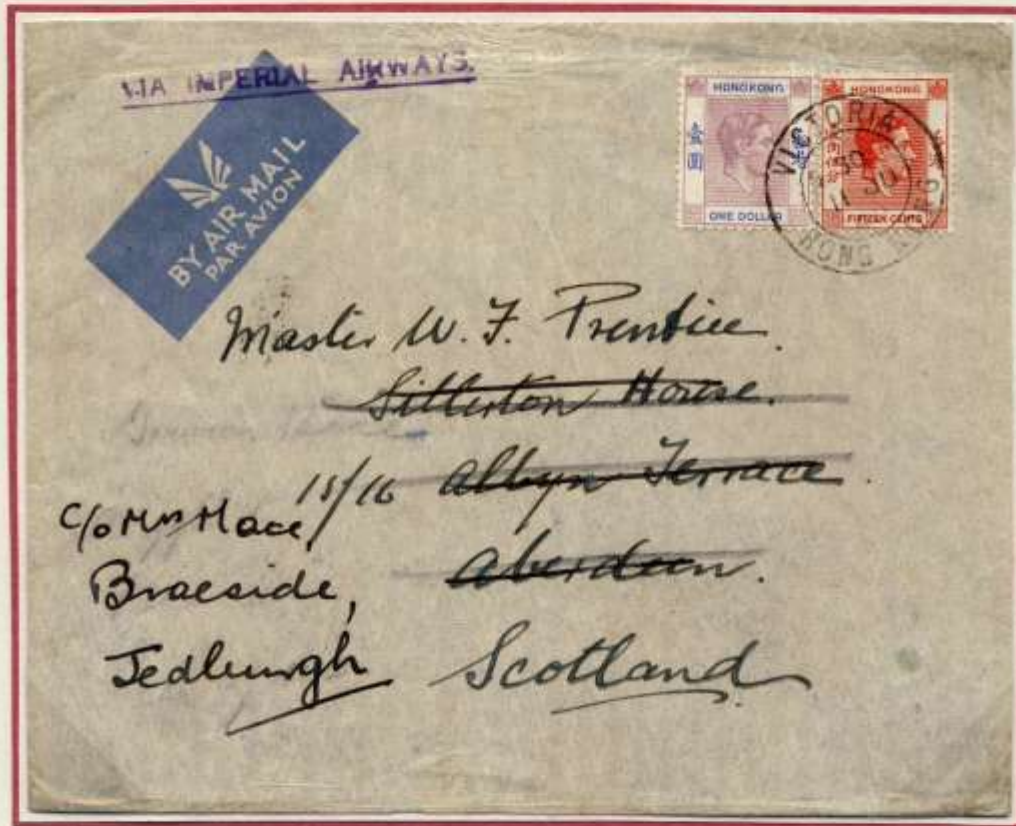 VIA IMPERIAL AIRWAYS.
BY AIR MAIL
PAR AVION
HONG KONG
壹
圓
ONE DOLLAR
HONG KONG
FIFTEEN CENTS
VICTORIA
HONG KONG
Master W. F. Prentice.
Sillerton House.
15/16 Albyn Terrace.
Aberdeen.
Scotland
c/o Mrs Mace,
Braeside,
Jedburgh